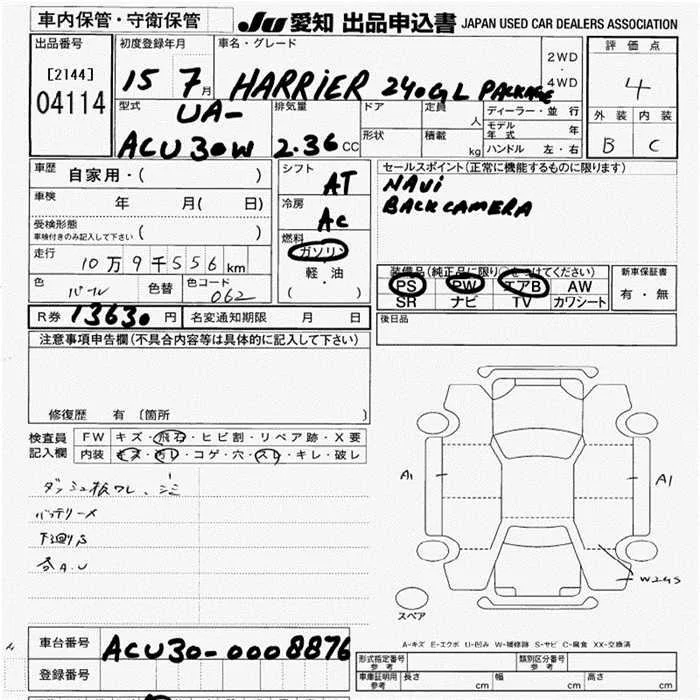 車内保管・守衛保管
JU 愛知 出品申込書 JAPAN USED CAR DEALERS ASSOCIATION
出品番号
[2144]
04114
初度登録年月
15 7月
車名・グレード
HARRiER 240G L PACKAGE
2WD
・
4WD
評価点
4
外装 内装
B C
型式
UA-
ACU30W
排気量
2.36 CC
ドア
定員
人
形状
積載
kg
ディーラー・並行
モデル年式 年
ハンドル 左・右
車歴 自家用・( )
車検 年 月( 日)
受検形態
車検付きのみ記入して下さい ( )
走行
10万9千556km
色 パール 色替 色コード 062
シフト
AT
冷房
AC
燃料
ガソリン
・
軽・油
( )
セールスポイント(正常に機能するものに限ります)
NAVi
BACKCAMERA
装備品(純正品に限り○をつけてください)
PS PW エアB AW
SR ナビ TV カワシート
新車保証書
有・無
R券 13630円 名変通知期限 月 日
後日品
注意事項申告欄(不具合内容等は具体的に記入して下さい)
修復歴 有〔箇所 〕
検査員記入欄
FW キズ・飛石・ヒビ割・リペア跡・X要
内装 キズ・汚レ・コゲ・穴・スレ・キレ・破レ
バッテリーメ
下廻りS
各A.U
A1
A1
W2 4S
スペア
A-キズ E-エクボ U-凹み W-補修跡 S-サビ C-腐食 XX-交換済
車台番号 ACU30-0008876
登録番号
形式指定番号 参考
類別区分番号 参考
車庫証明用 参考 長さ cm 幅 cm 高さ cm